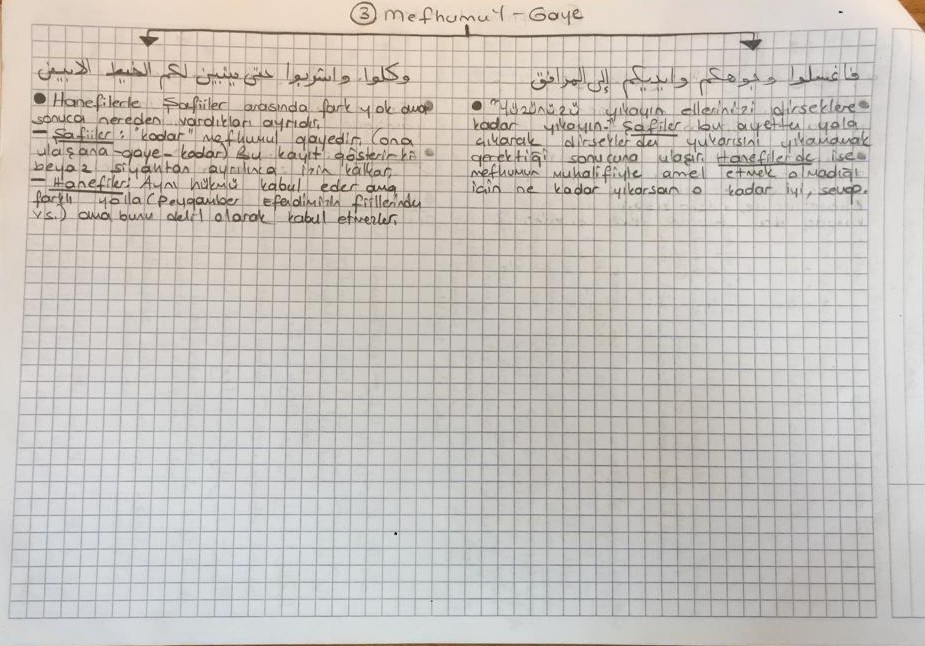 ③ Mefhumu'l-Gaye
وكلوا واشربوا حتى يتبين لكم الخيط الابيض
● Hanefilerle Şafiiler arasında fark yok ama
sonuca nereden vardıkları ayrıdır.
— Şafiiler: "kadar" mefhumul gayedir. (ona
ulaşana-gaye-kadar) Bu kayıt gösterir ki
beyaz siyahtan ayrılınca izin kalkar.
— Hanefiler: Aynı hükmü kabul eder ama
farklı yolla (Peygamber efendimizin fiillerinden
vs.) ama bunu delil olarak kabul etmezler.
فاغسلوا وجوهكم وايديكم إلى المرافق
● "Yüzünüzü yıkayın ellerinizi dirseklere
kadar yıkayın." Şafiler bu ayetten yola
çıkarak dirseklerden yukarısını yıkamamak
gerektiği sonucuna ulaşır. Hanefilerde ise
mefhumun muhalifiyle amel etmek olmadığı
için ne kadar yıkarsan o kadar iyi, sevap.